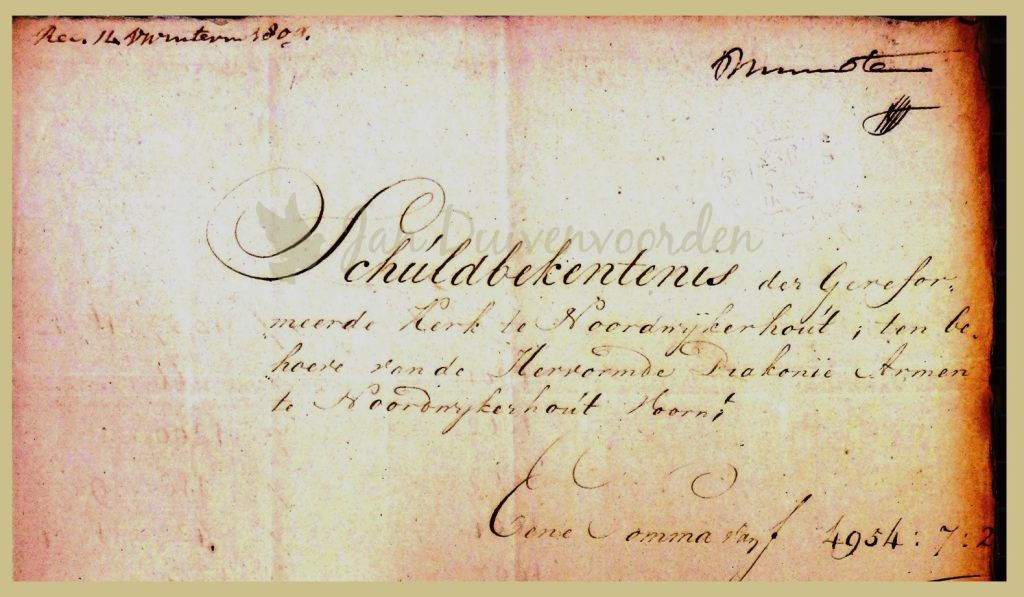 Rec. 14 Winterm 1809.
Jan Duivenvoorden
Schuldbekentenis der Gerefor=
meerde Kerk te Noordwijkerhout, ten be
hoeve van de Hervormde Diakonie Armen
te Noordwijkerhout Voorn:t
Eene Comma van f 4954 : 7 : 2